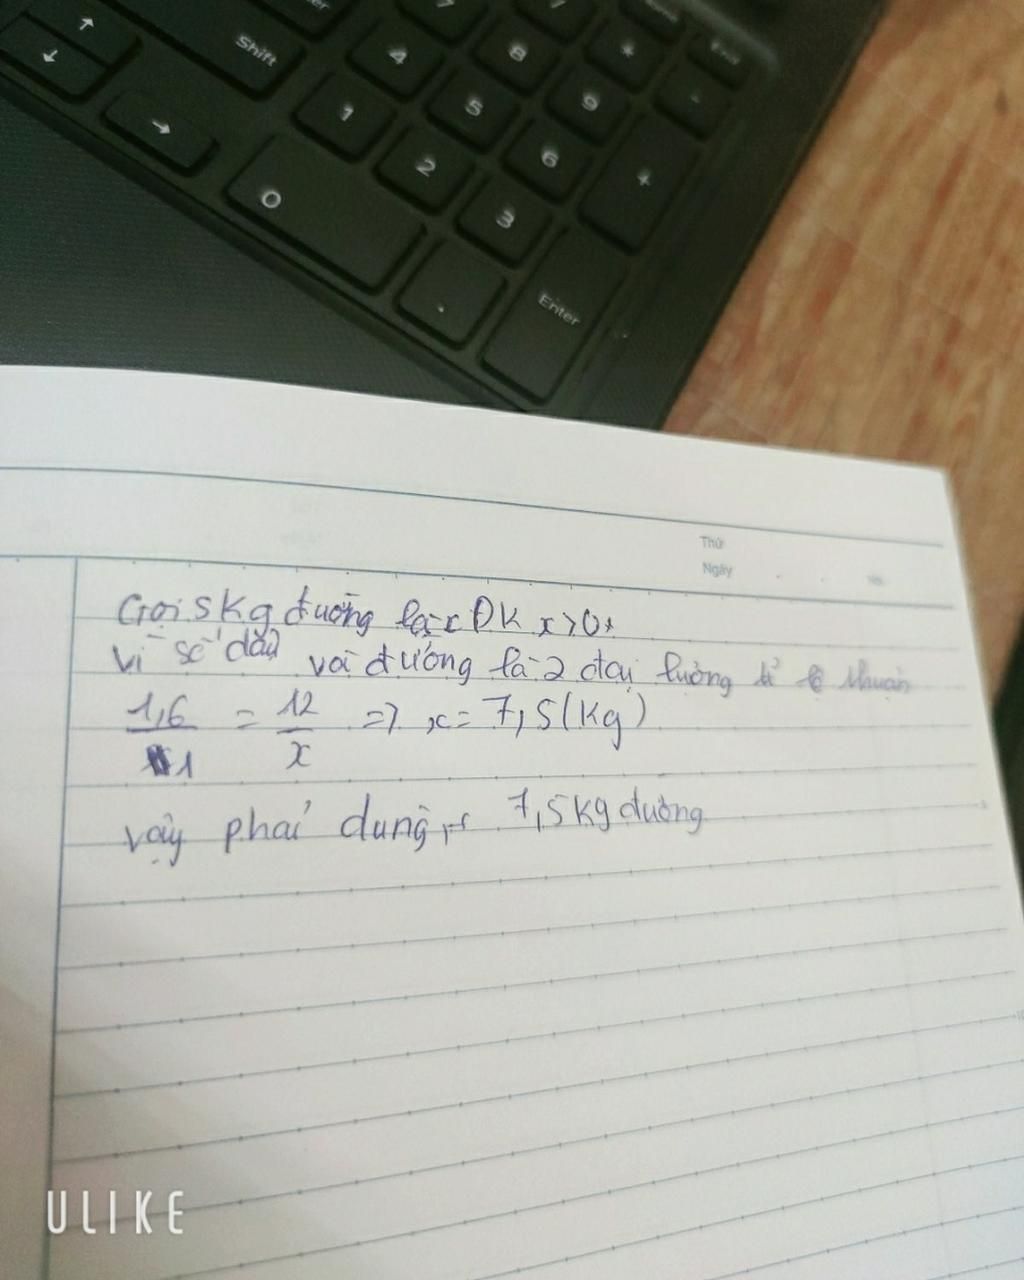 Shift
Enter
End
7
4
8
*
1
5
9
-
2
6
+
0
3
.
Enter
Thứ
Ngày
Gọi s Kg đường là x ĐK x>0
Vì số dâu và đường là 2 đại lượng tỉ lệ thuận
1,6/1 = 12/x => x = 7,5 (Kg)
vậy phải dùng 7,5 kg đường
ULIKE